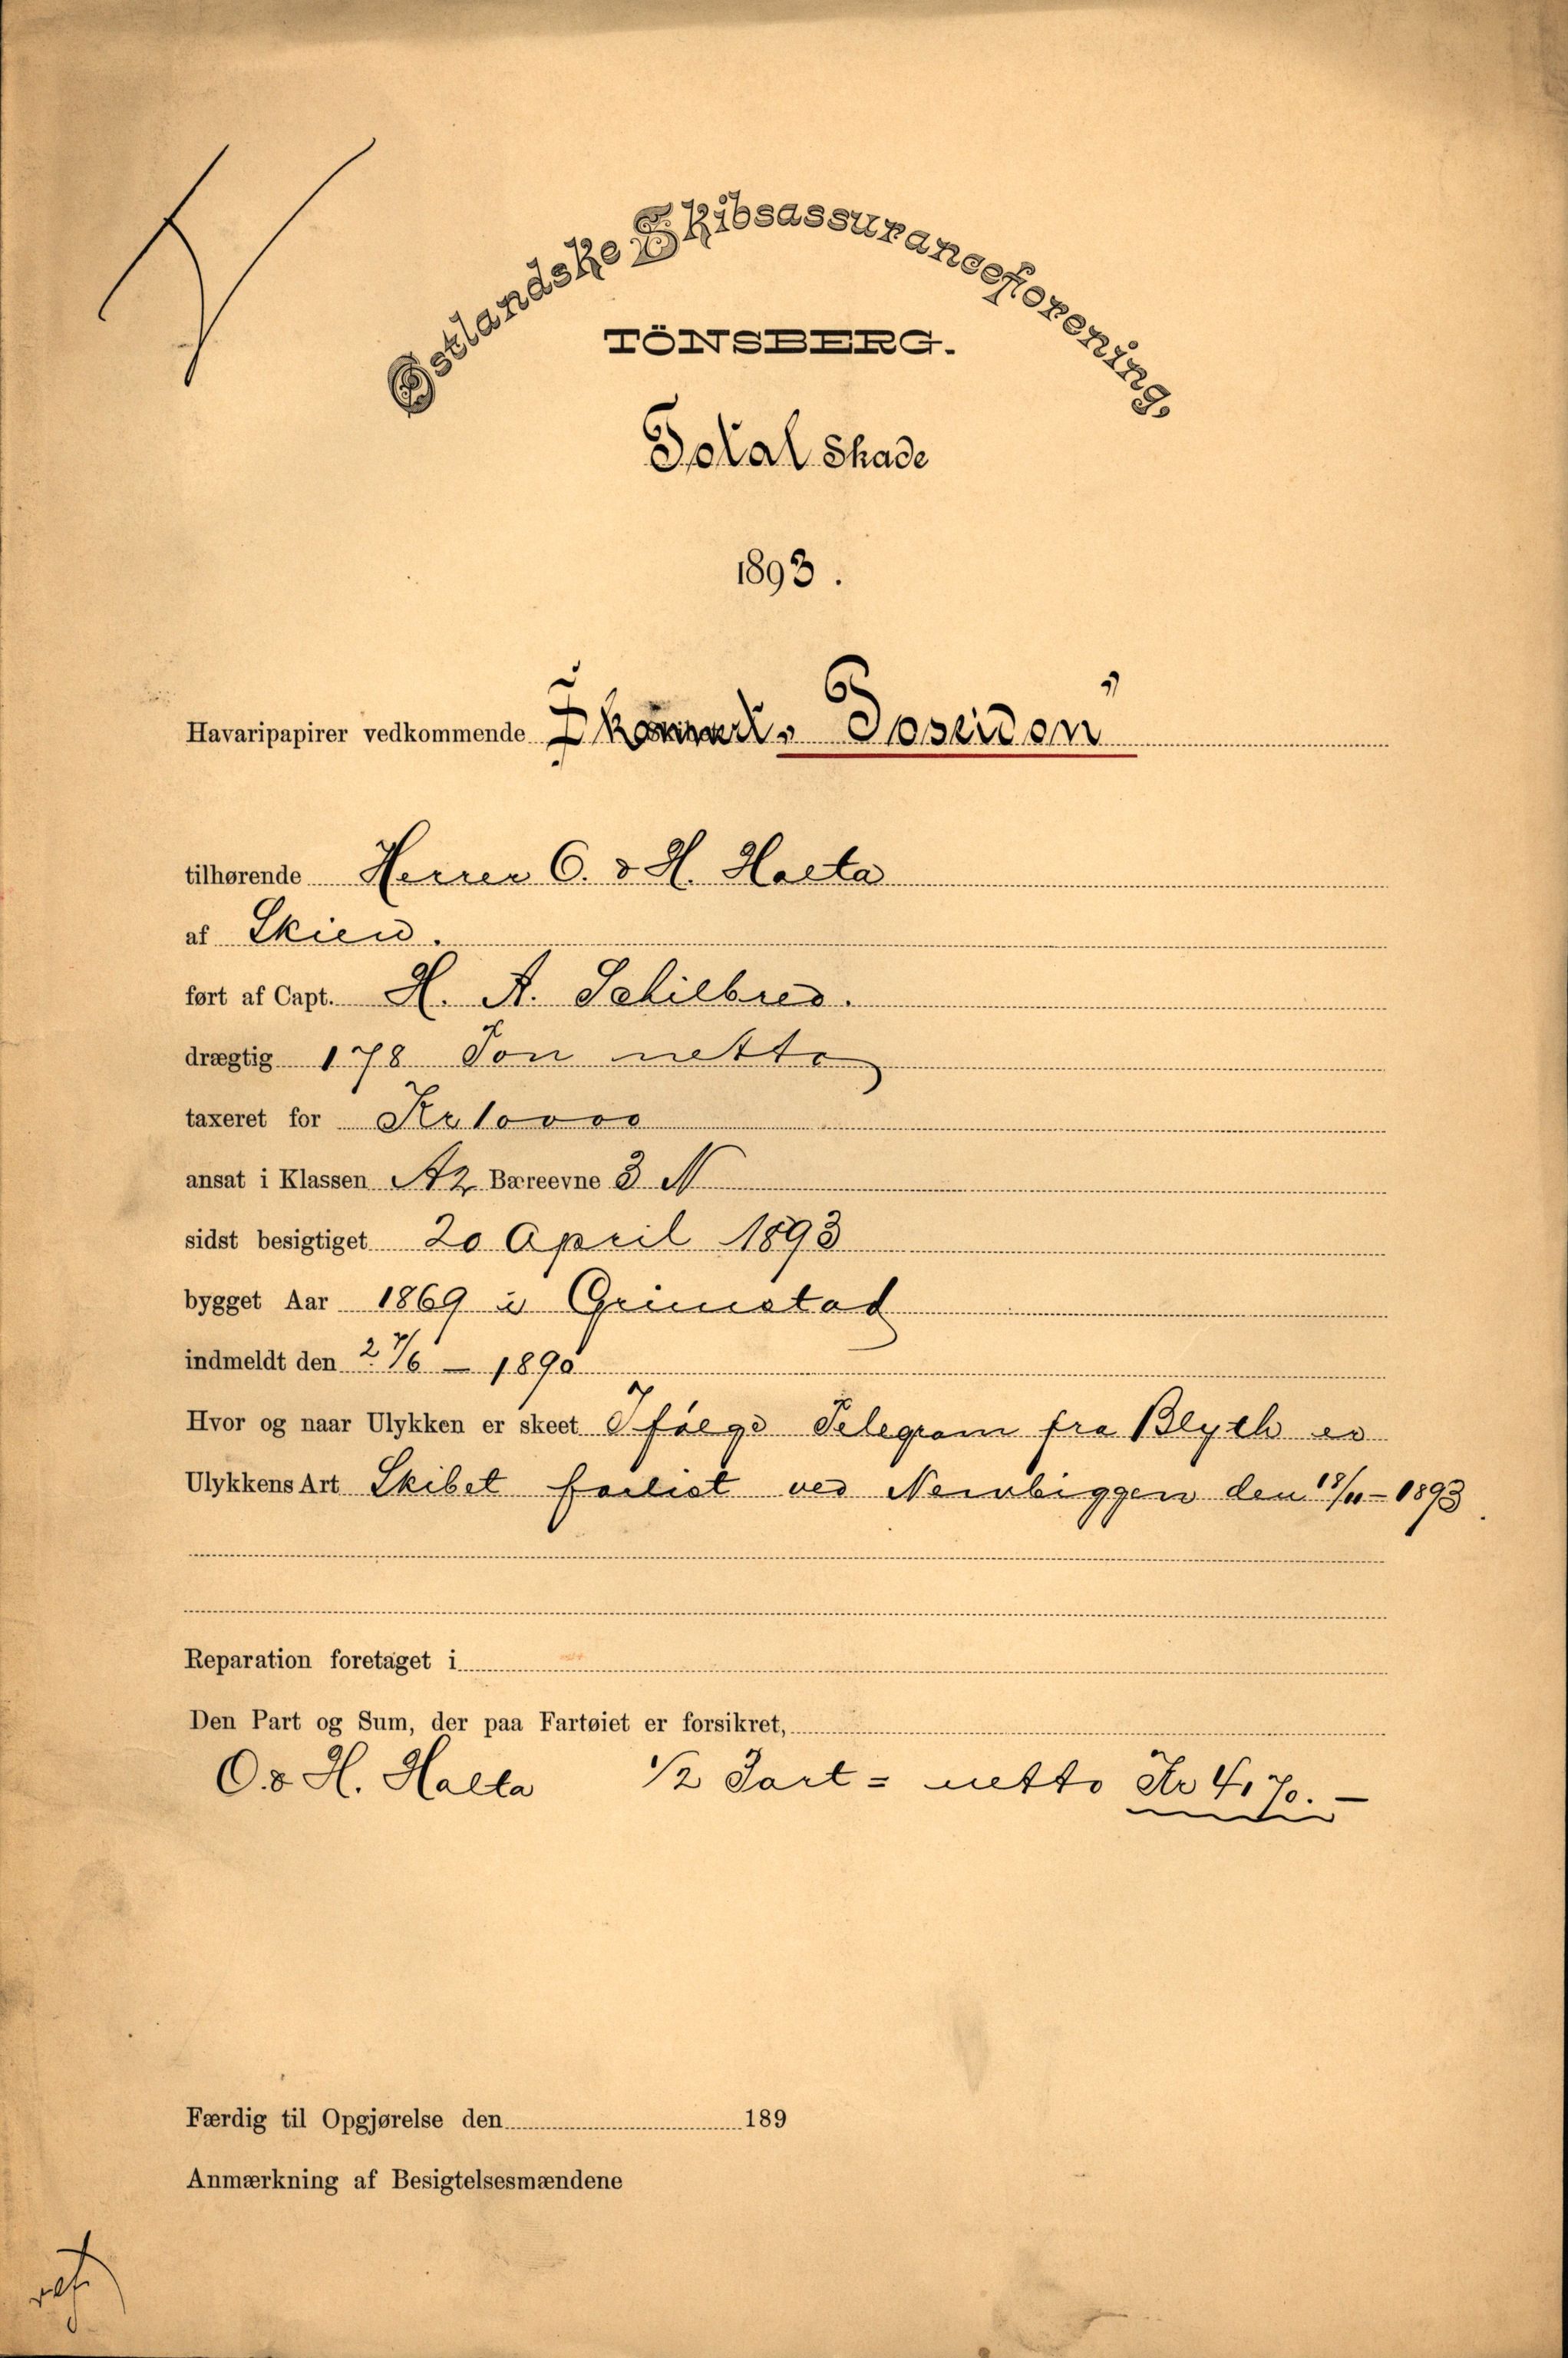 Østlandske Skibsassuranceforening,
TÖNSBERG.
Total Skade
1893.
Havaripapirer vedkommende Skonnert „Poseidon"
tilhørende Herrer C. & H. Holta
af Skien.
ført af Capt. H. A. Schilbred.
drægtig 178 Ton netto
taxeret for Kr 10000
ansat i Klassen A2 Bæreevne 3 N
sidst besigtiget 20 April 1893
bygget Aar 1869 i Grimstad
indmeldt den 27/6 – 1890
Hvor og naar Ulykken er skeet Ifølge Telegram fra Blyth er
Ulykkens Art Skibet forlist ved Newbiggen den 18/11 – 1893.
Reparation foretaget i
Den Part og Sum, der paa Fartøiet er forsikret,
C. & H. Holta 1/2 Part = netto Kr
Færdig til Opgjørelse den 189
Anmærkning af Besigtelsesmændene